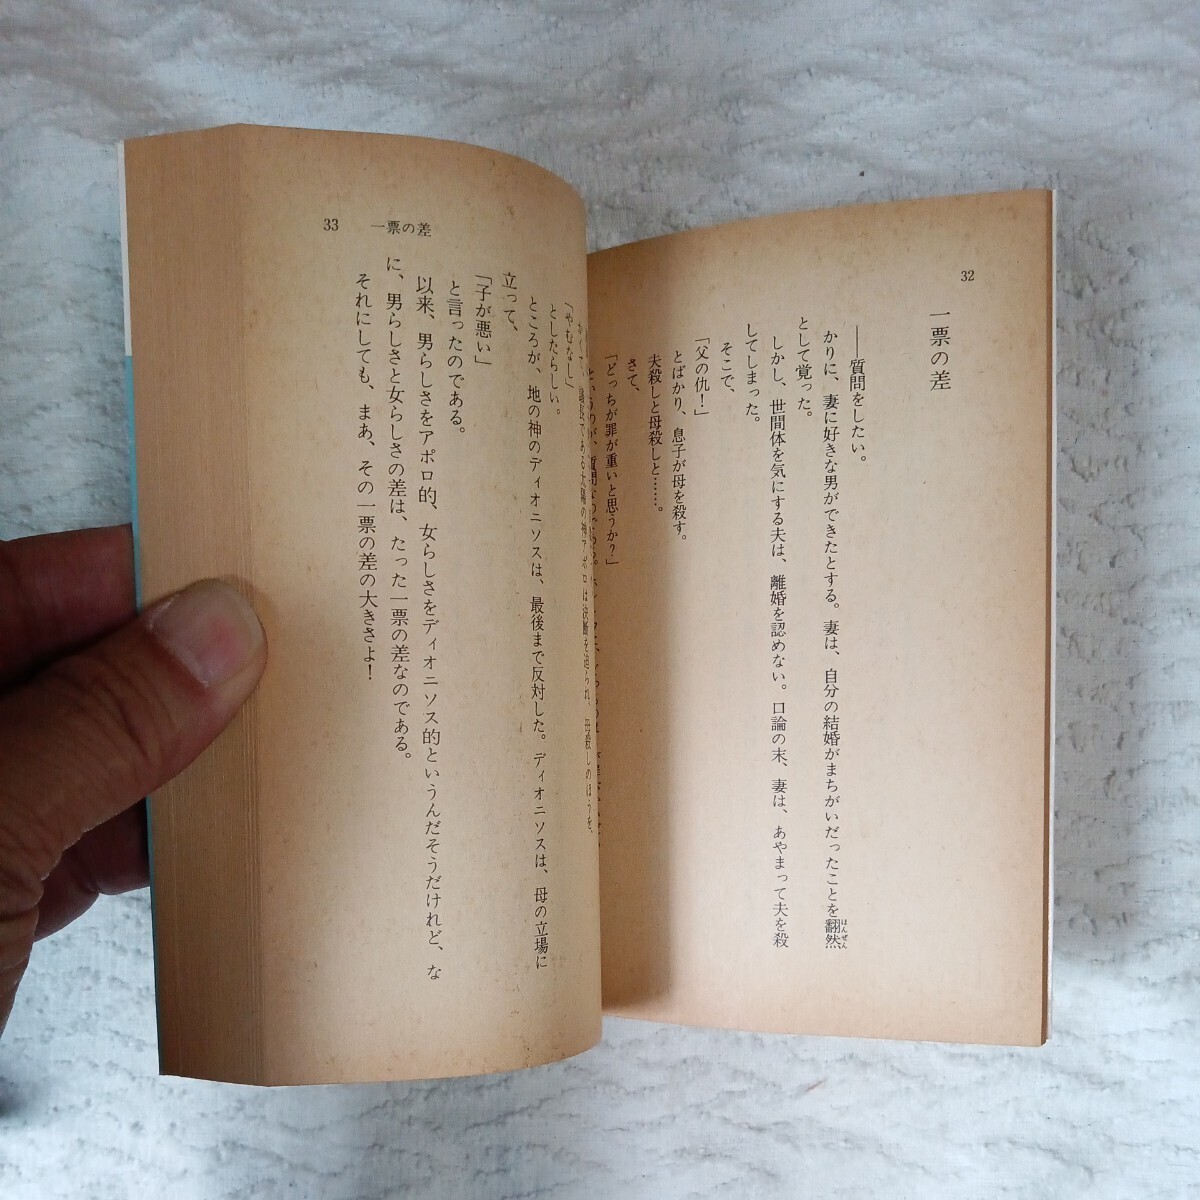 32
一票の差
――質問をしたい。
かりに、妻に好きな男ができたとする。妻は、自分の結婚がまちがいだったことを翻然
ほんぜん
として覚った。
しかし、世間体を気にする夫は、離婚を認めない。口論の末、妻は、あやまって夫を殺
してしまった。
そこで、
「父の仇！」
とばかり、息子が母を殺す。
夫殺しと母殺しと……。
さて、
「どっちが罪が重いと思うか？」
33 一票の差
である太陽の神アポロは決断を迫られ、母殺しのほうを、
「やむなし」
としたらしい。
ところが、地の神のディオニソスは、最後まで反対した。ディオニソスは、母の立場に
立って、
「子が悪い」
と言ったのである。
以来、男らしさをアポロ的、女らしさをディオニソス的というんだそうだけれど、な
に、男らしさと女らしさの差は、たった一票の差なのである。
それにしても、まあ、その一票の差の大きさよ！